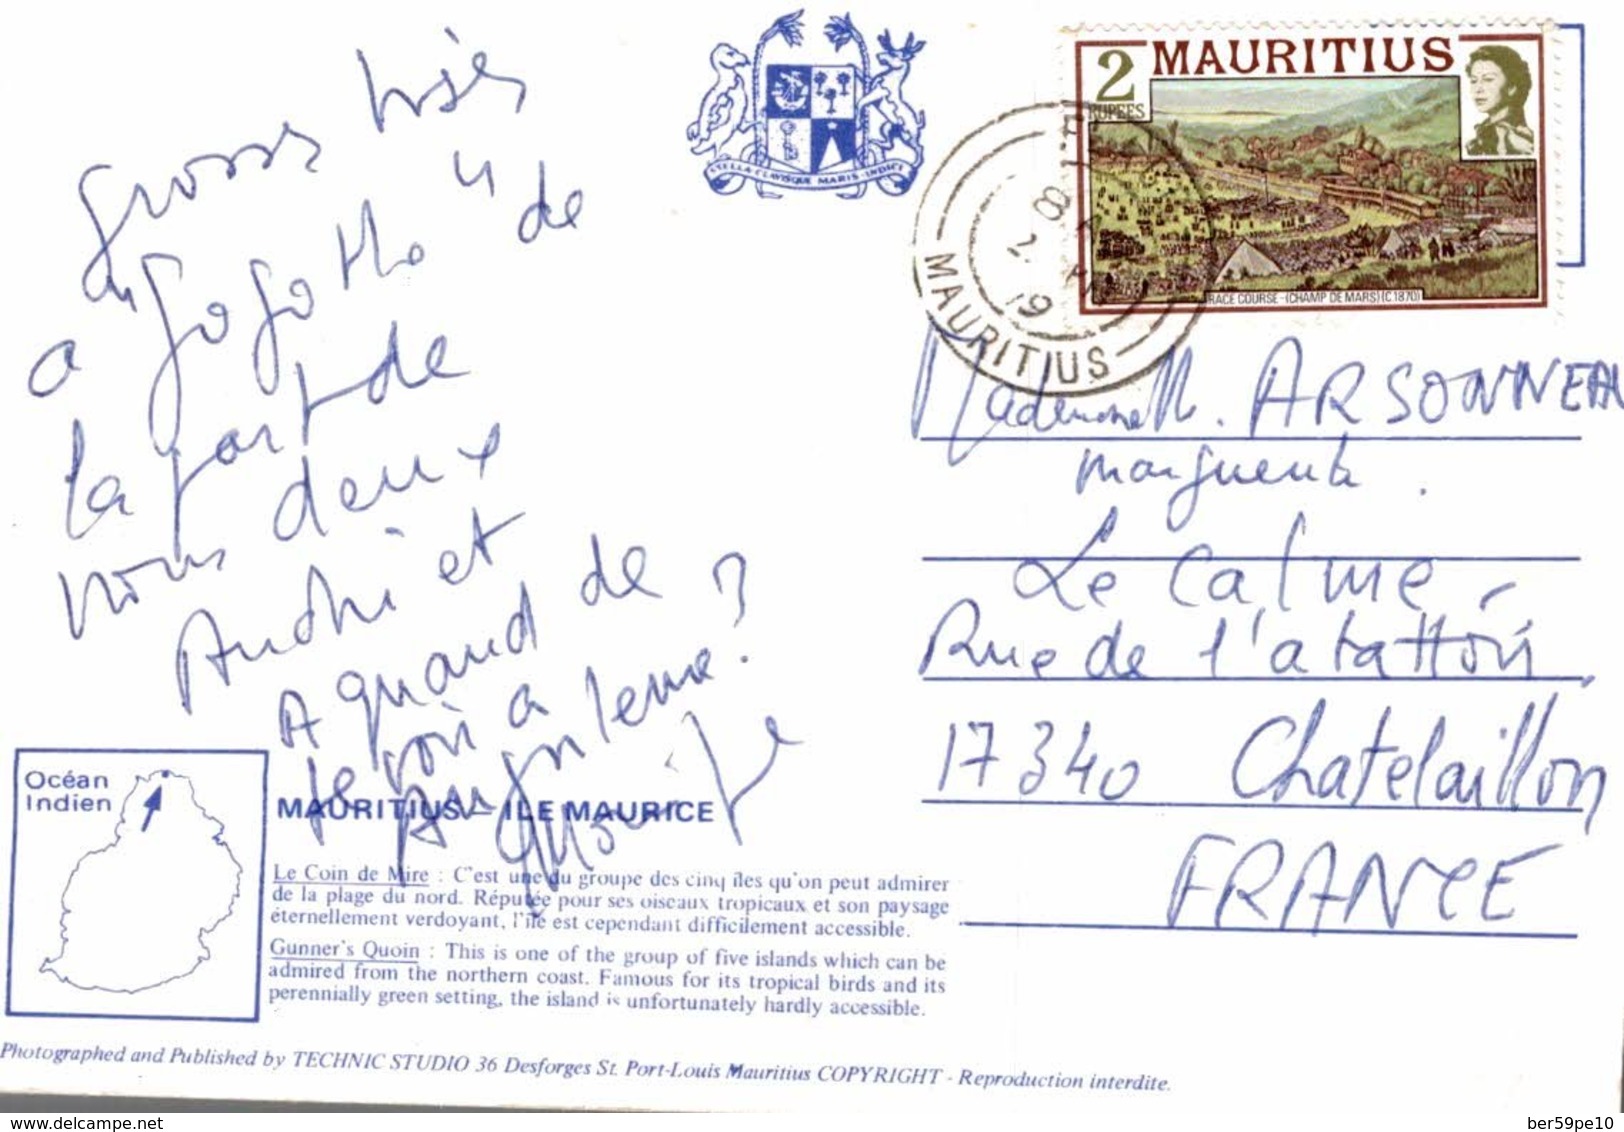 Grosses bises
à "Gogotte" de
la part de
nous deux
André et
A quand de
te voir à
leure ?
STELLA CLAVISQUE MARIS INDICI
2
RUPEES
MAURITIUS
RACE COURSE-(CHAMP DE MARS)(C.1870)
8
2
19
MAURITIUS
Mademoiselle. ARSONNEAU
Marguerite.
Le Calme -
Rue de l'abattoir
17340 Chatelaillon
FRANCE
Océan
Indien
MAURITIUS - ILE MAURICE
Le Coin de Mire : C'est une du groupe des cinq îles qu'on peut admirer
de la plage du nord. Réputée pour ses oiseaux tropicaux et son paysage
éternellement verdoyant, l'île est cependant difficilement accessible.
Gunner's Quoin : This is one of the group of five islands which can be
admired from the northern coast. Famous for its tropical birds and its
perennially green setting, the island is unfortunately hardly accessible.
Photographed and Published by TECHNIC STUDIO 36 Desforges St. Port-Louis Mauritius COPYRIGHT - Reproduction interdite.
delcampe.net
ber59pe10